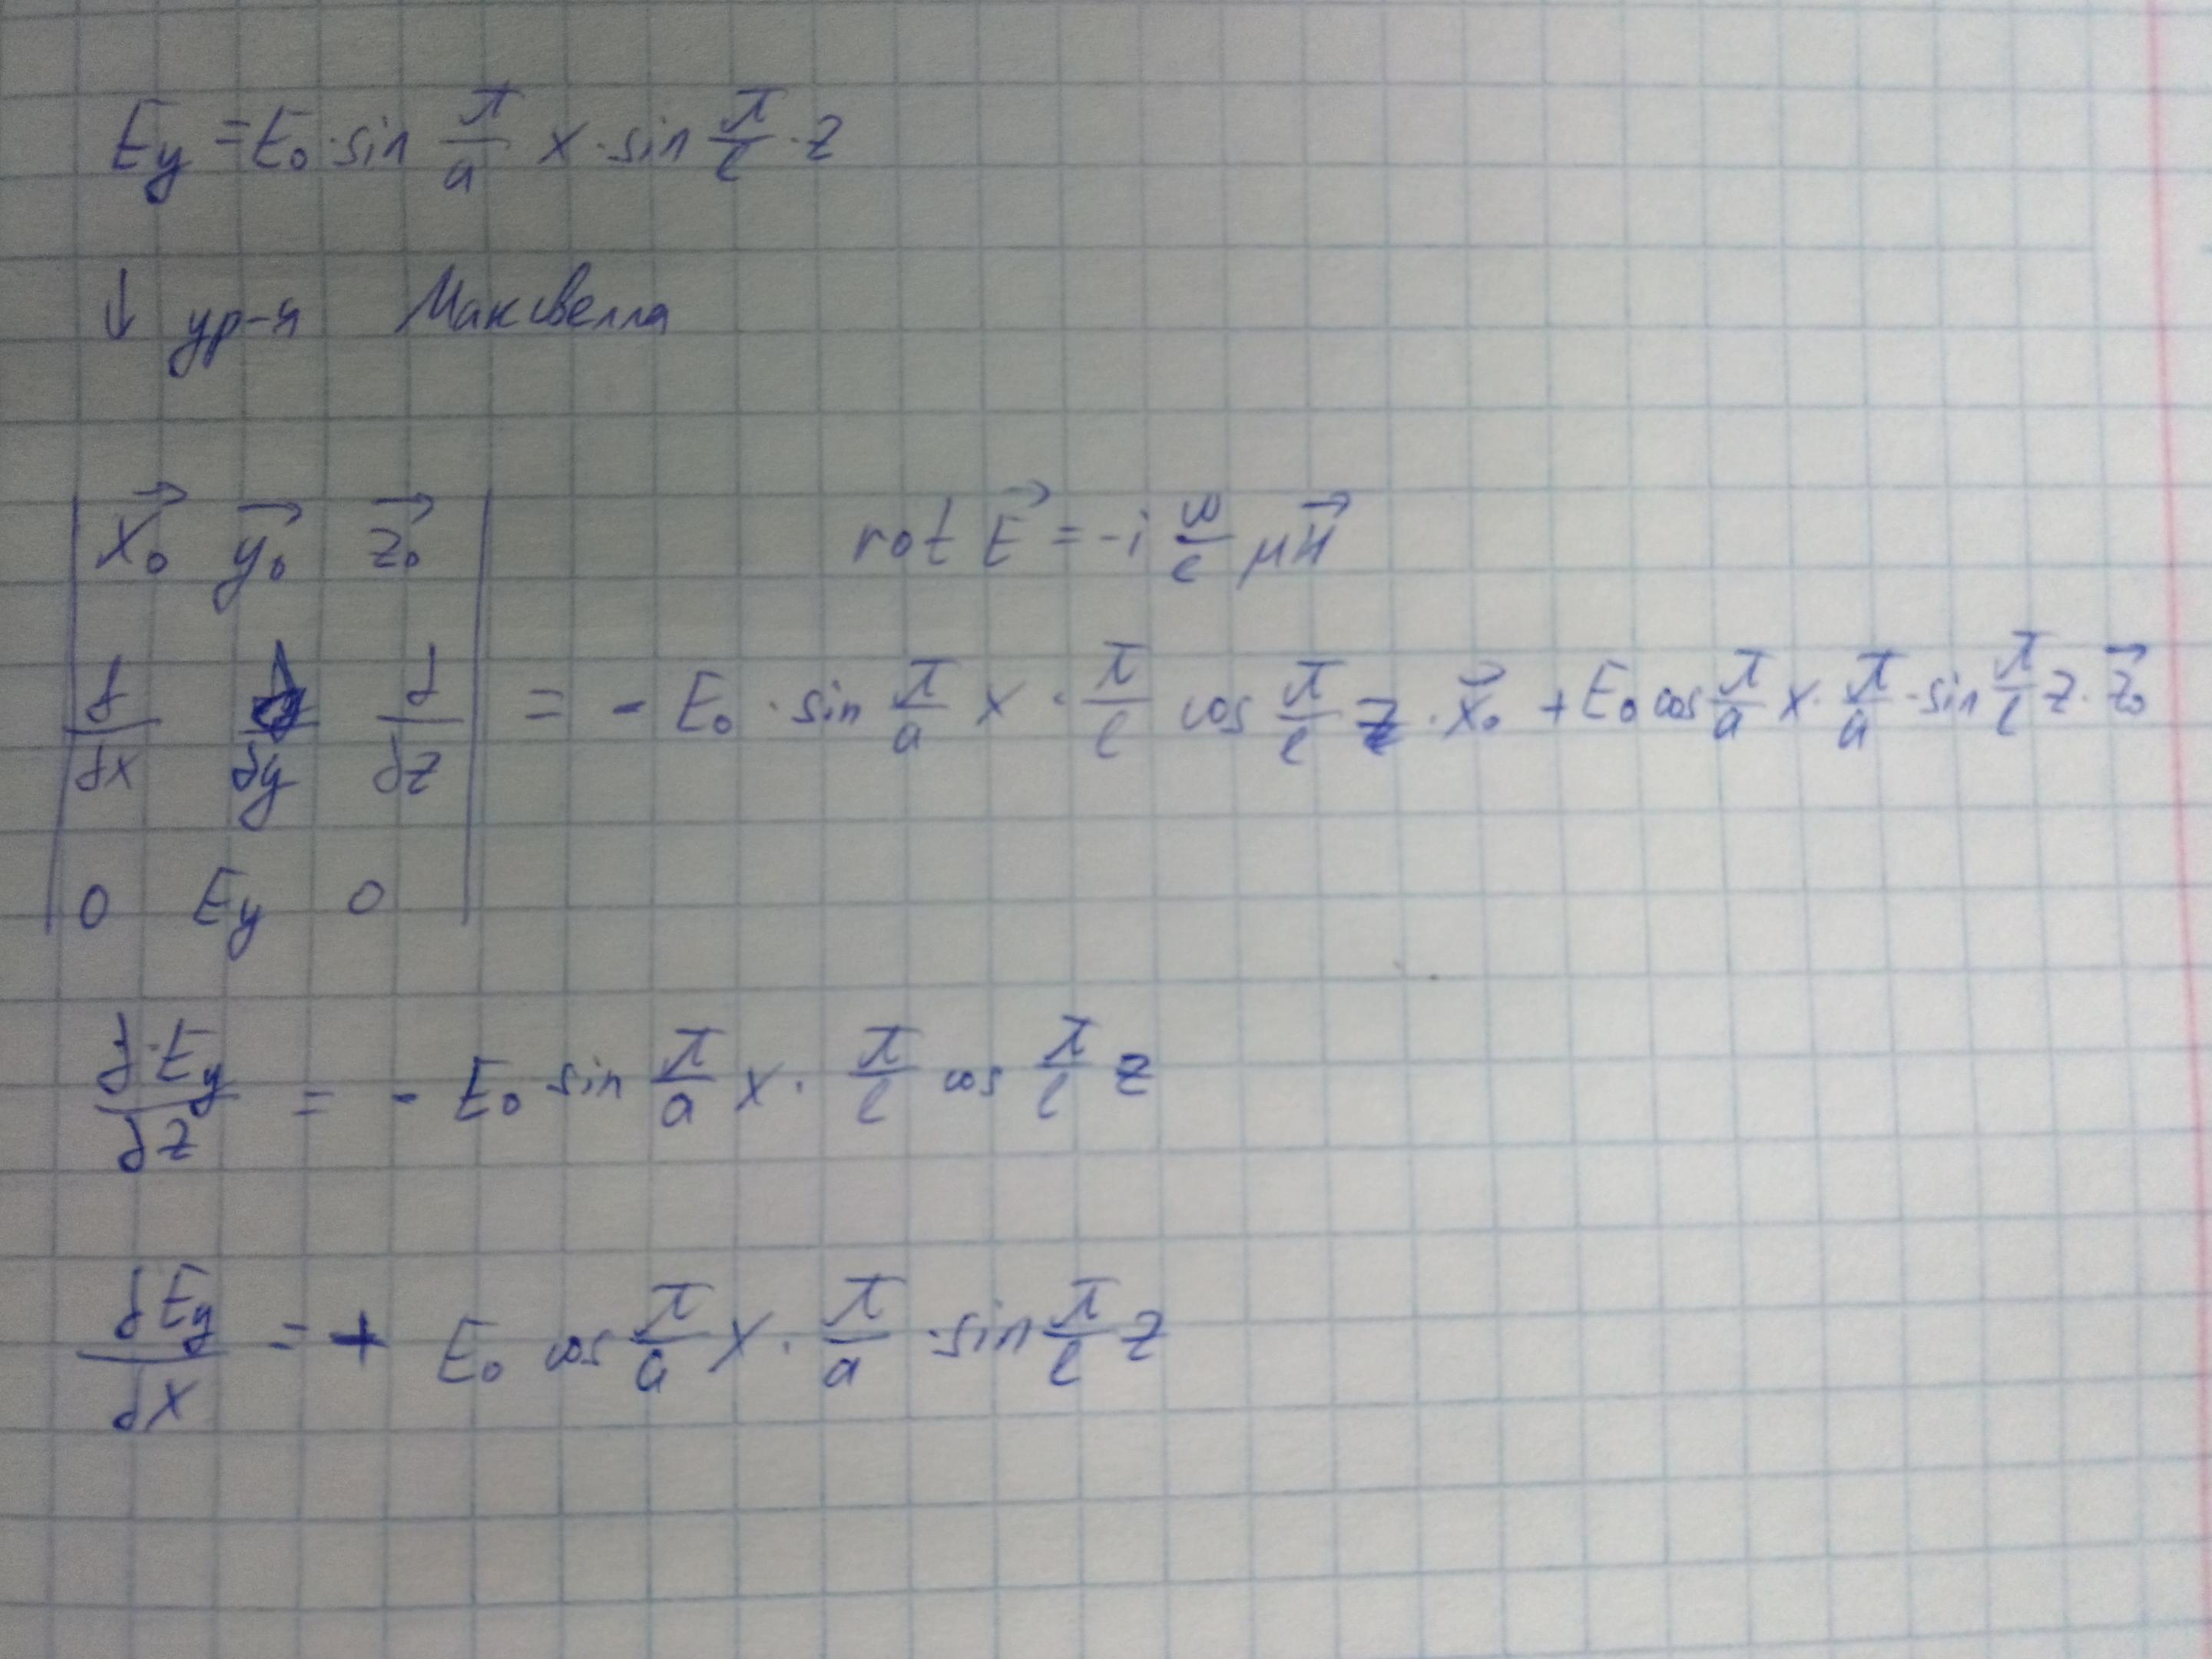 Ey = E₀·sin π/a x·sin π/l·z
↓ ур-я Максвелла
| x⃗₀ y⃗₀ z⃗₀ | rot E⃗ = -i ω/c μH⃗
| ∂/∂x ∂/∂y ∂/∂z | = - E₀·sin π/a x · π/l cos π/l z·x⃗₀ + E₀ cos π/a x·π/a·sin π/l z·z⃗₀
| 0 Ey 0 |
∂·Ey/∂z = - E₀ sin π/a x· π/l cos π/l z
∂Ey/∂x = + E₀ cos π/a x· π/a ·sin π/l z